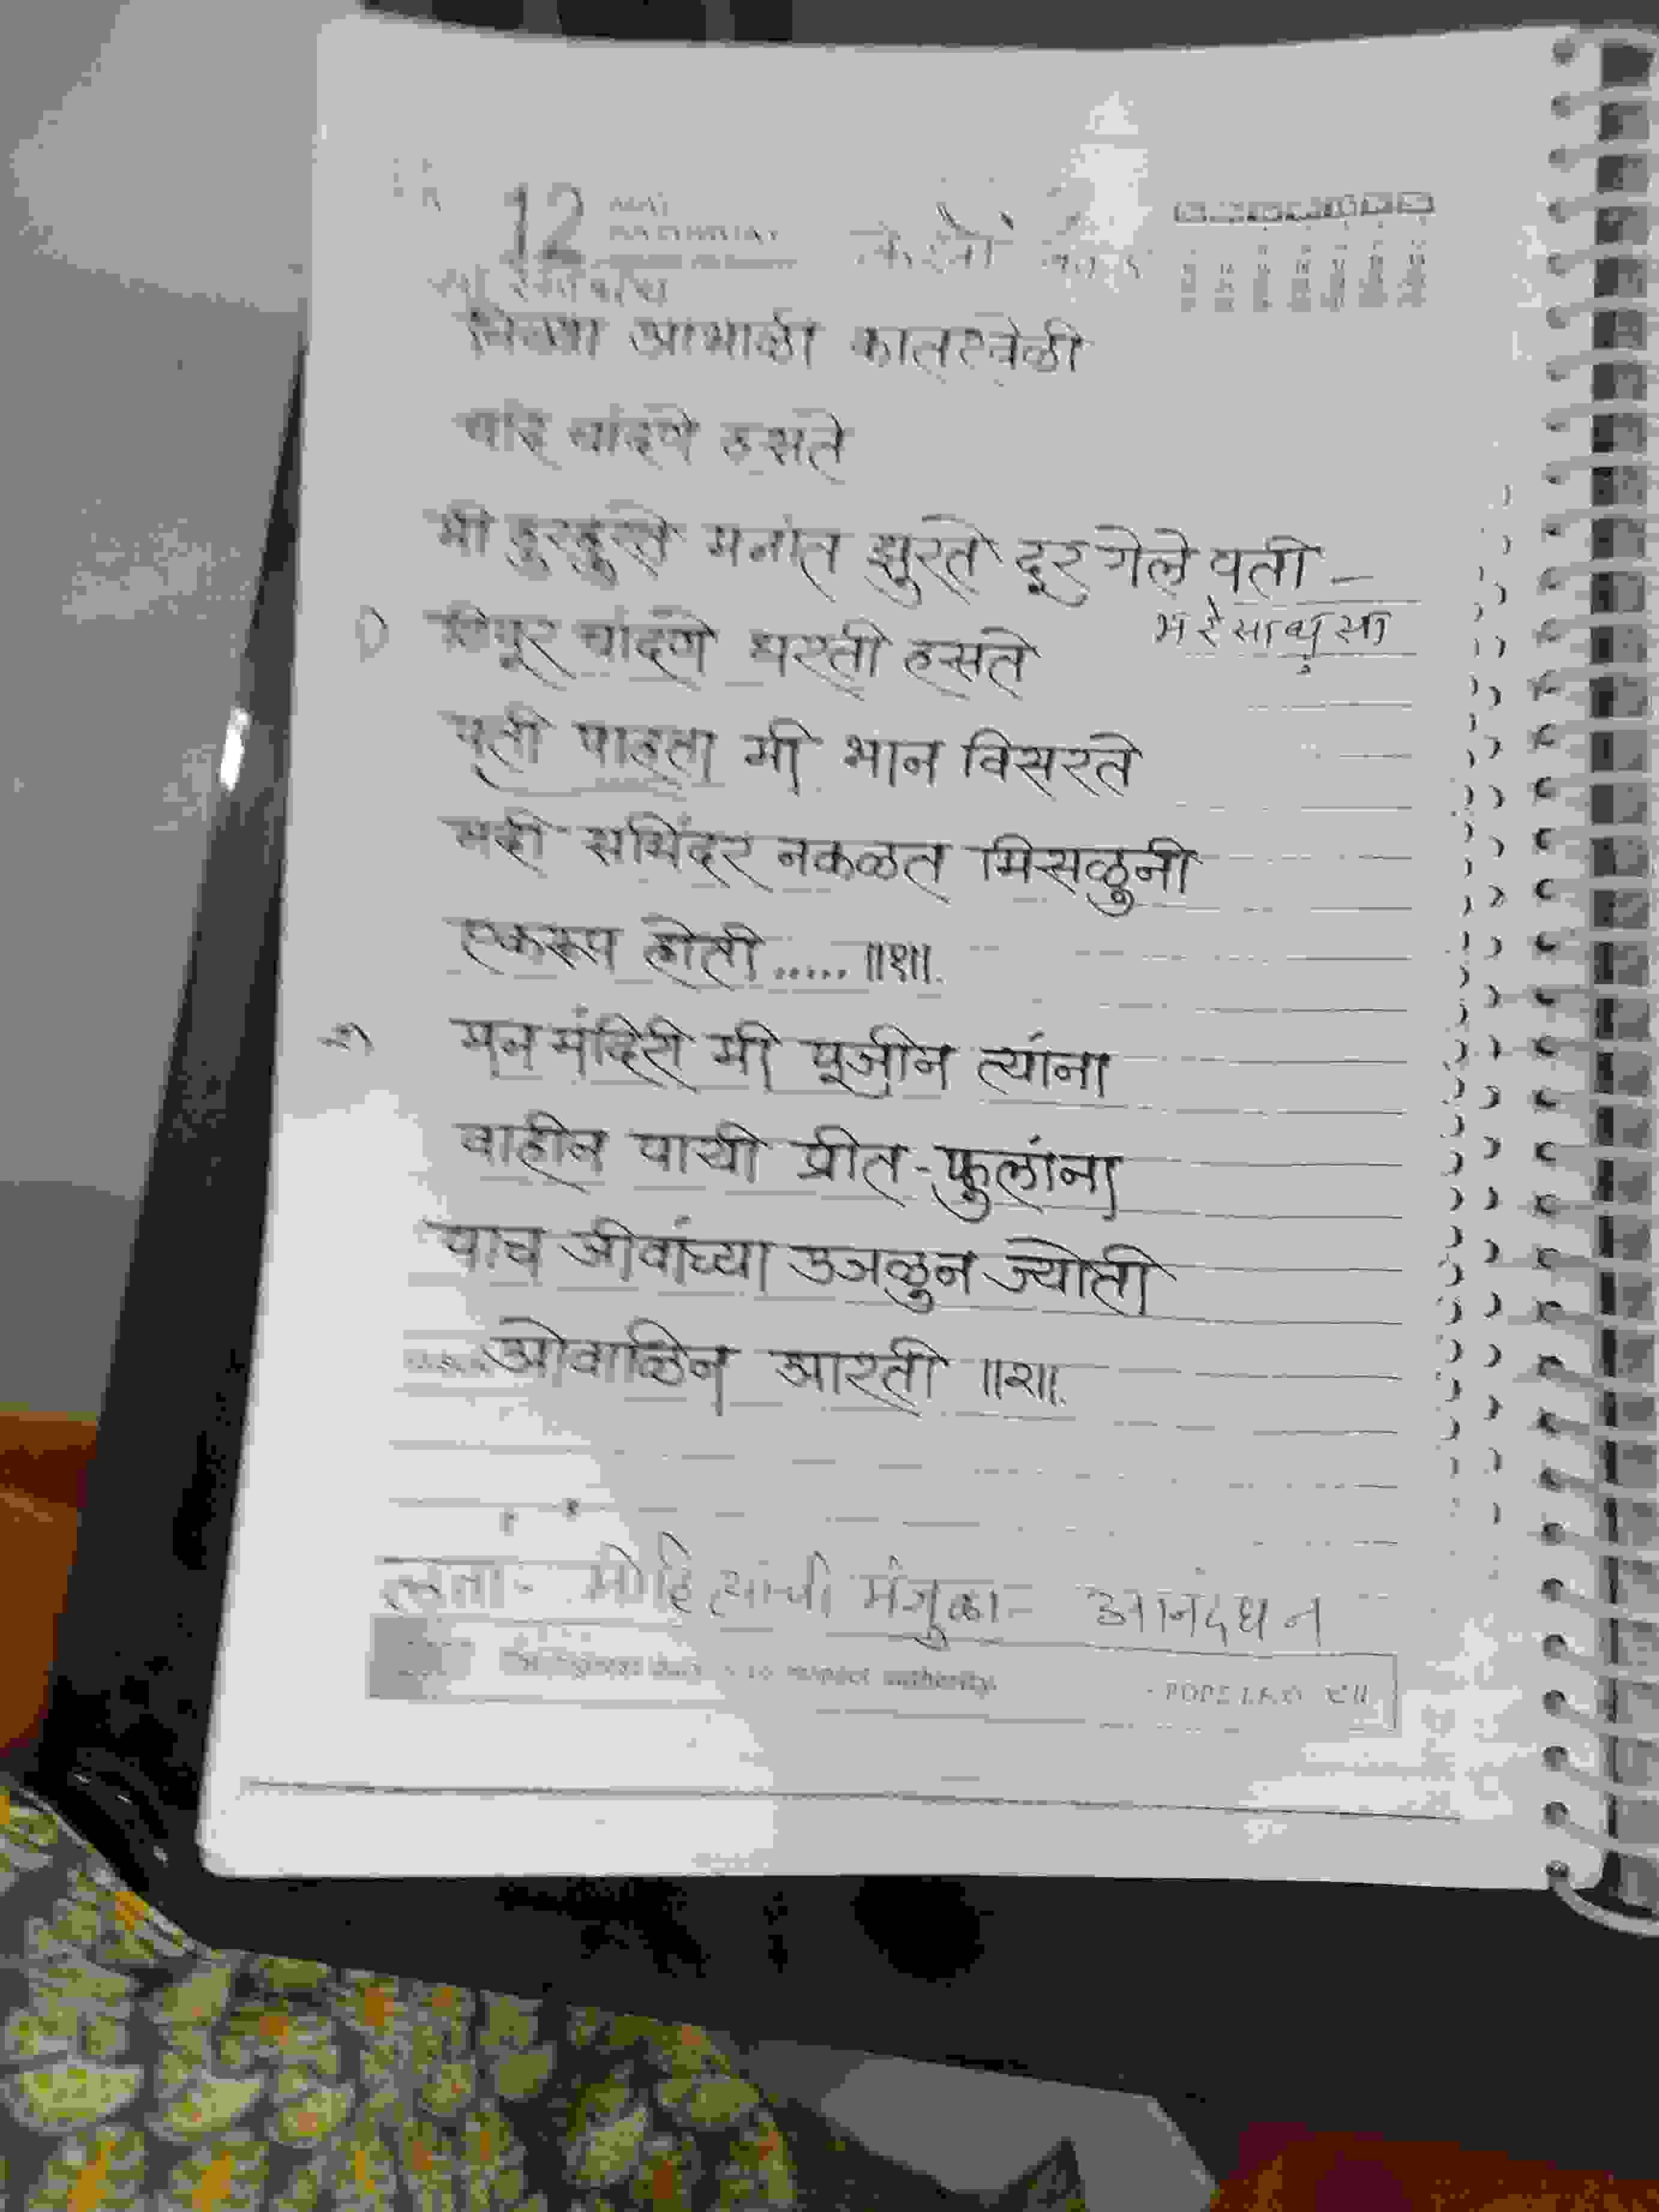 12
निळ्या आभाळी कातरवेळी
चांद चांदणे हसते
मी हुरहुरते मनांत झुरते दूर गेले पती -
भ रे सा धु सा
१) टिपूर चांदणे धरती हसते
पती पाहता मी भान विसरते
नदी समिंदर नकळत मिसळुनी
एकरूप होती ..... ॥१॥.
२) मन मंदिरी मी पूजीन त्यांना
वाहीन पायी प्रीत-फुलांना
पाच जीवांच्या उजळुन ज्योती
ओवाळिन आरती ॥२॥.
लता - मोहित्यांची मंजुळा - आनंदघन
to respect authority.
- POPE LEO